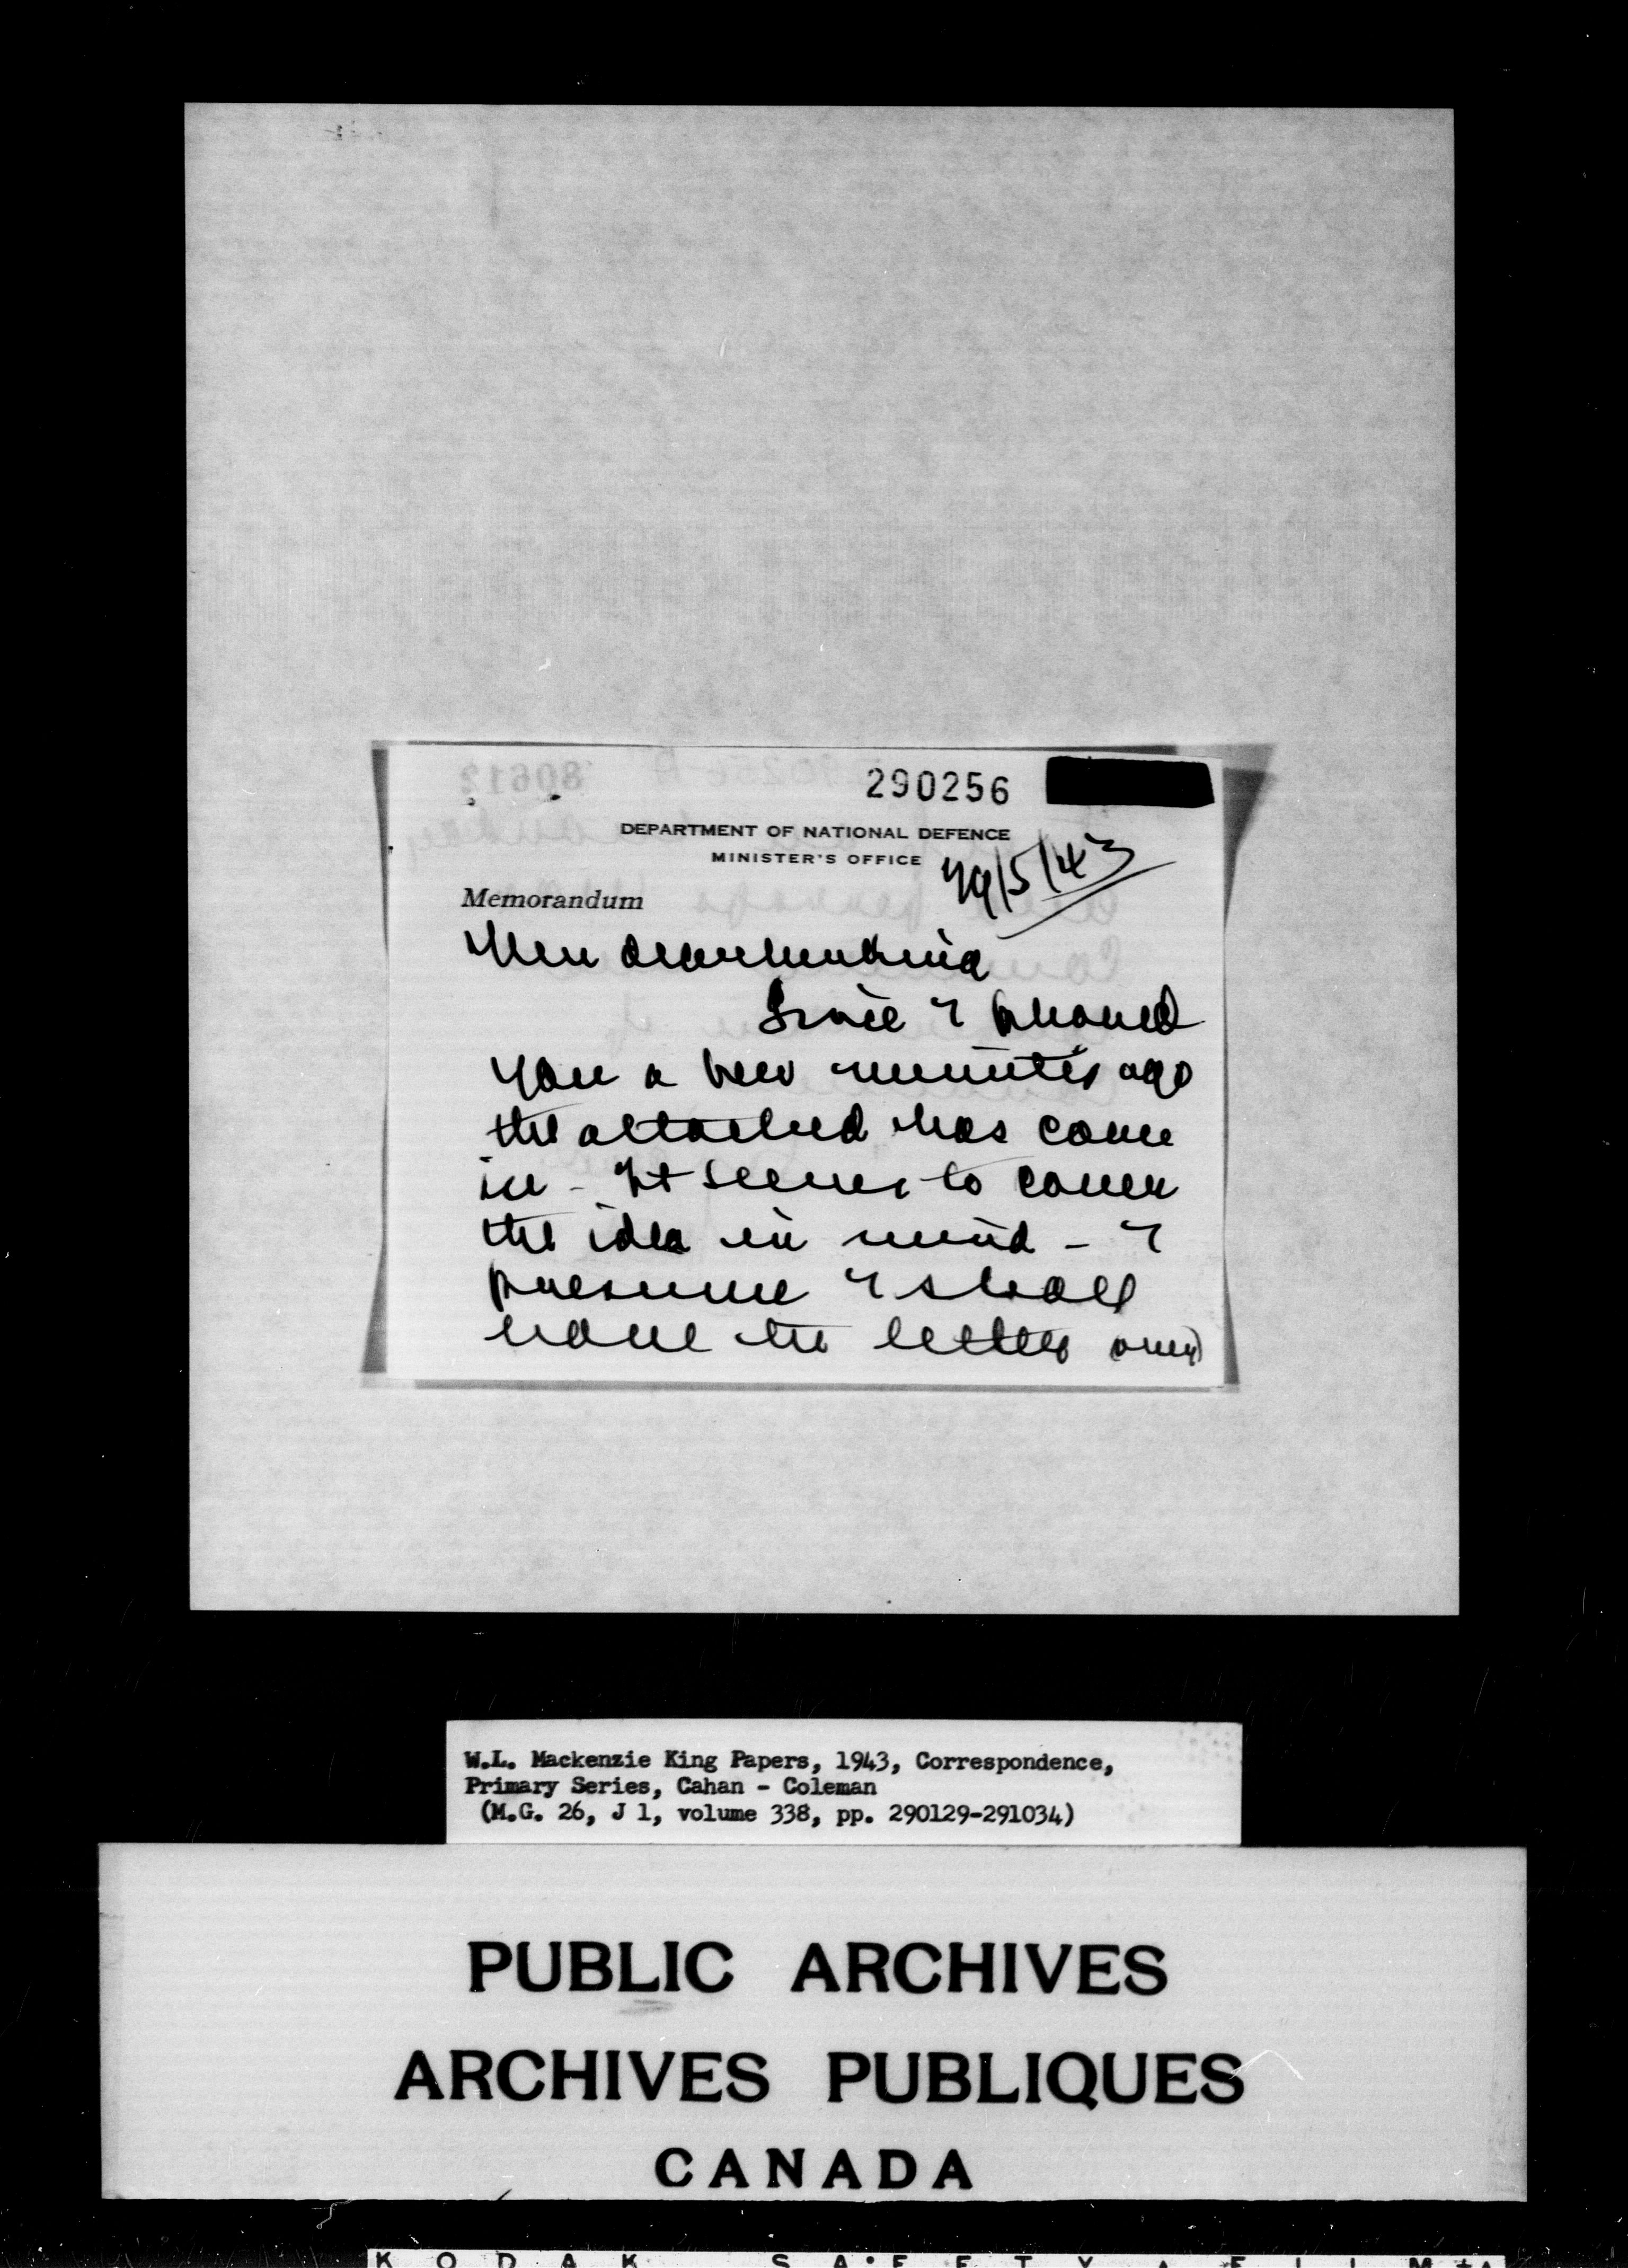 290256
DEPARTMENT OF NATIONAL DEFENCE
MINISTER'S OFFICE
29/5/43
Memorandum
My dear
Since I phoned
you a few minutes ago
the attached has come
in - It seems to cover
the idea in mind - I
presume I shall
have the letter over
W.L. Mackenzie King Papers, 1943, Correspondence,
Primary Series, Cahan - Coleman
(M.G. 26, J 1, volume 338, pp. 290129-291034)
PUBLIC ARCHIVES
ARCHIVES PUBLIQUES
CANADA
KODAK SAFETY FILM